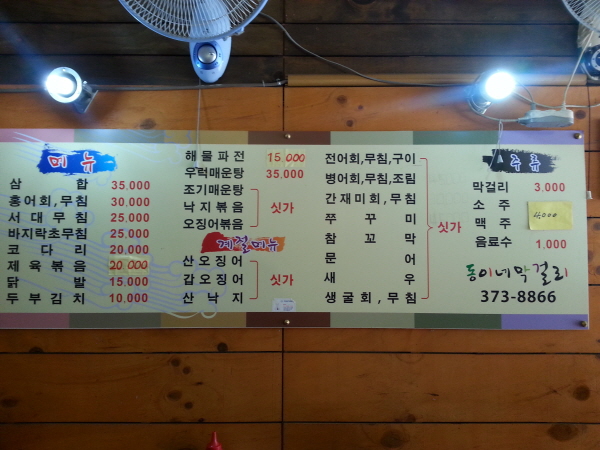 메뉴
삼합 35,000
홍어회,무침 30,000
서대무침 25,000
바지락초무침 25,000
코다리 20,000
제육볶음 20,000
닭발 15,000
두부김치 10,000
해물파전 15,000
우럭매운탕 35,000
조기매운탕
낙지볶음 싯가
오징어볶음
계절메뉴
산오징어
갑오징어 싯가
산낙지
전어회,무침,구이
병어회,무침,조림
간재미회,무침
쭈꾸미 싯가
참꼬막
문어
새우
생굴회,무침
주류
막걸리 3,000
소주 4,000
맥주
음료수 1,000
동이네막걸리
373-8866